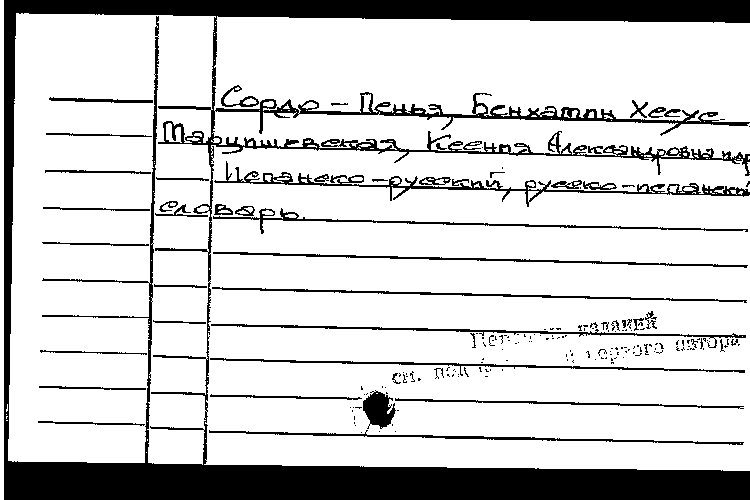 Сордо-Пенья, Бенхамин Хесус
Марцишевская, Ксения Александровна
Испанско-русский, русско-испанский
словарь.
Перечень изданий
см. под первого автора